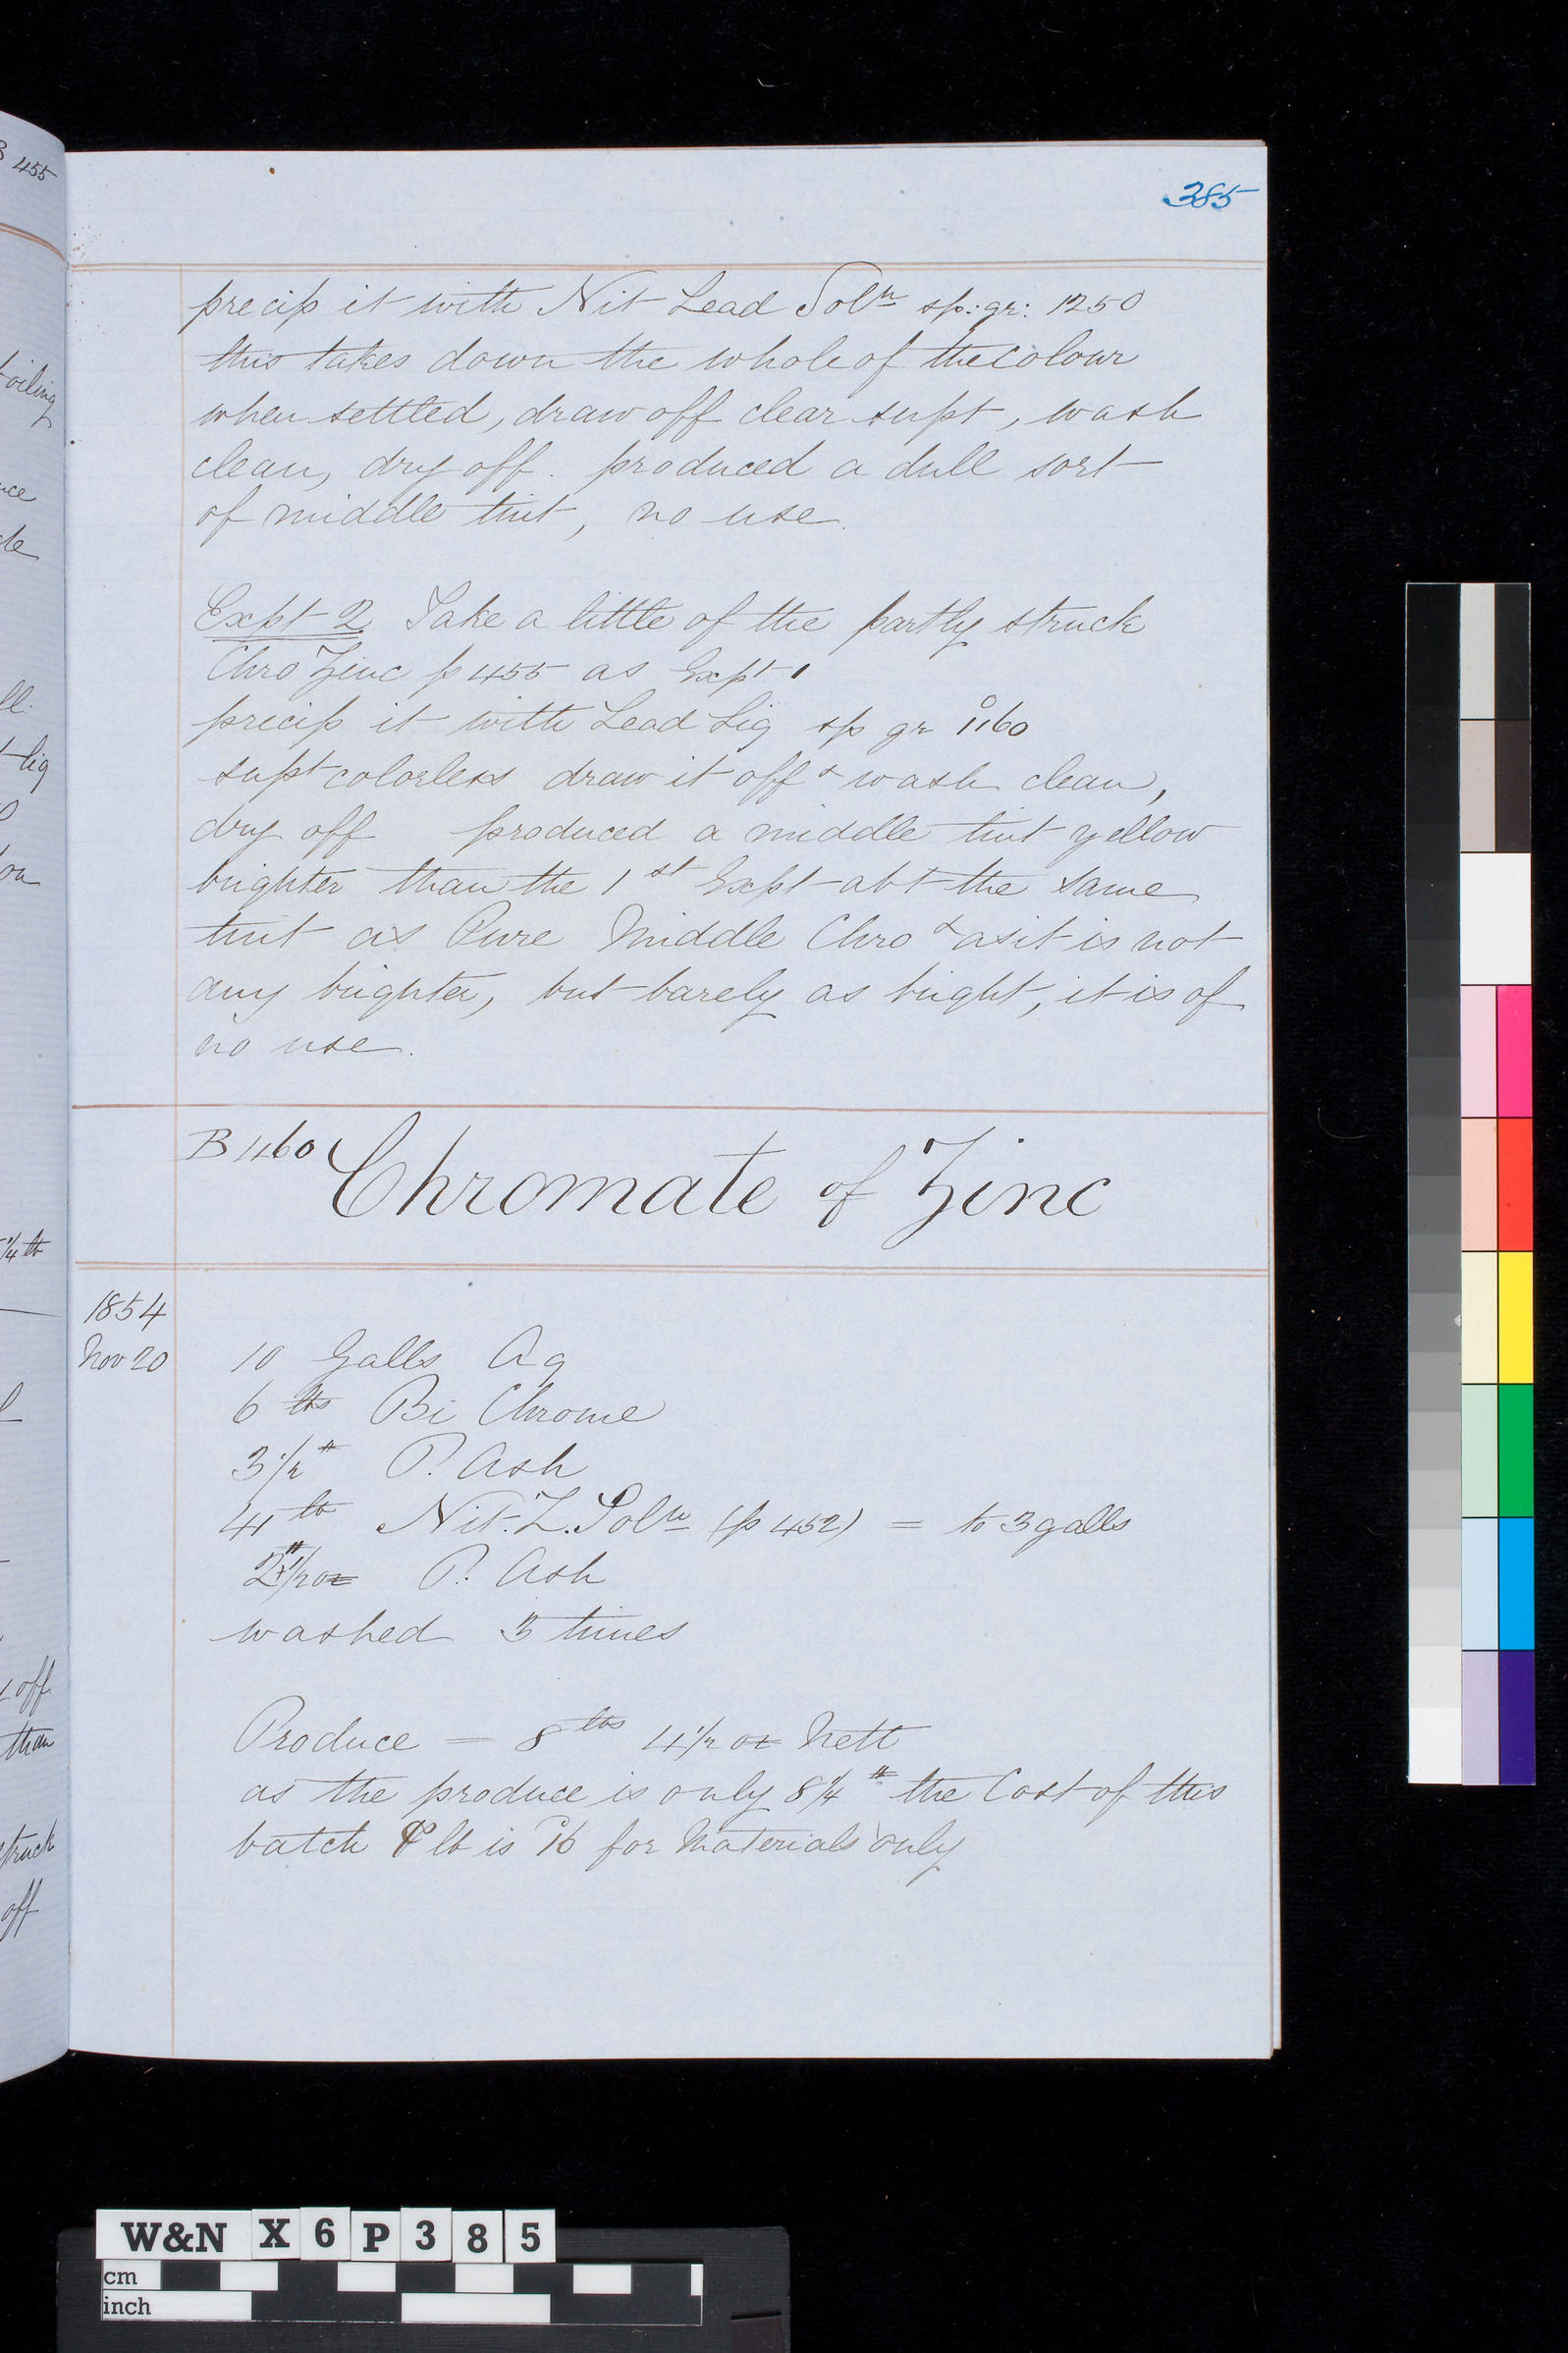 B 455
385
precip it with Nit Lead Solⁿ sp: gr: 1250
this takes down the whole of the colour
when settled, draw off clear supt, wash
clean, dry off. produced a dull sort
of middle tint, no use.
Expt 2 Take a little of the partly struck
Chro Zinc p 455 as Expt 1
precip it with Lead Liq sp gr 1160
supt colorless draw it off & wash clean,
dry off produced a middle tint yellow
brighter than the 1st Expt abt the same
tint as Pure Middle Chro & as it is not
any brighter, but barely as bright, it is of
no use.
B 460 Chromate of Zinc
1854
Nov 20 10 Galls Aq
6 lbs Bi Chrome
3 1/2 # P. Ash
4 lb Nit. Z. Solⁿ (p 452) = to 3 galls
P. Ash
washed 3 times
Produce = 8 lbs 4 1/2 oz Nett
as the produce is only 8 1/4 # the Cost of this
batch ⅌ lb is for Materials only
boiling
liq
1/4 lb
off
than
struck
off
W&N X 6 P 3 8 5
cm
inch